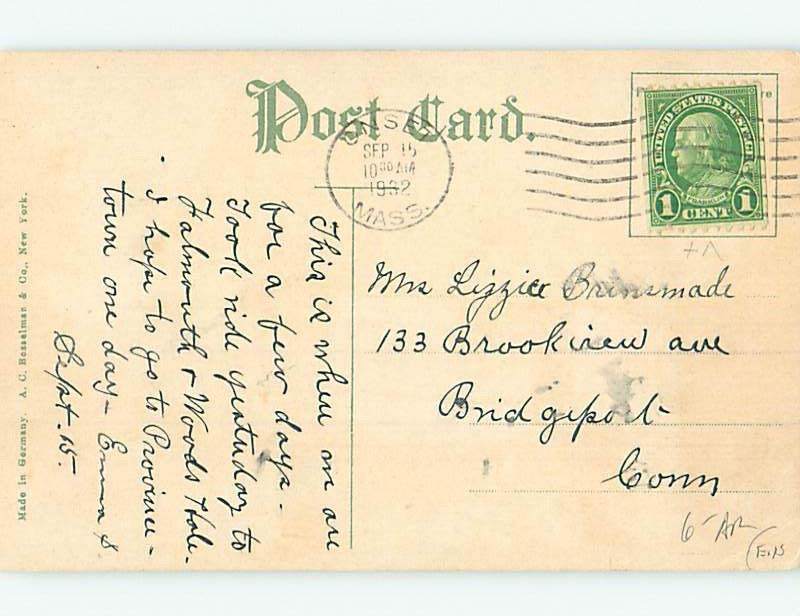 Post Card.
ONSET
SEP 15
10 30 AM
1932
MASS.
UNITED STATES POSTAGE
FRANKLIN
1 CENT 1
This is where we are
for a few days -
Took ride yesterday to
Falmouth & Woods Hole.
I hope to go to Province-
town one day - Emma S.
Sept. 15.
Mrs Lizzie Brinsmade
133 Brookview ave
Bridgeport
Conn
Made in Germany. A. C. Bosselman & Co., New York.